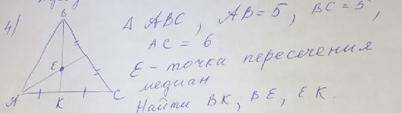 4)
B
E
A K C
Δ ABC, AB = 5, BC = 5,
AC = 6
E - точка пересечения
медиан
Найти BK, BE, EK.